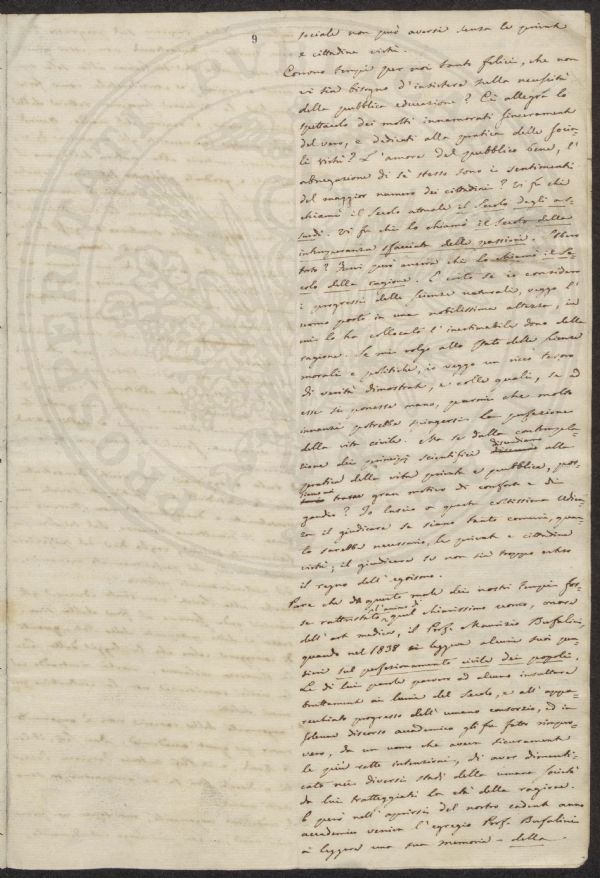 9
sociale non può aversi senza le private
e cittadine virtù.
Corrono tempi per noi tanto felici, che non
vi sia bisogno d'insistere sulla necessità
della pubblica educazione? Ci allegra lo
spettacolo dei molti innamorati sinceramente
del vero, e dedicati alla pratica delle socia-
li virtù? L'amore del pubblico bene, l'
abnegazione di sè stesso sono i sentimenti
del maggior numero dei cittadini? Vi fu chi
chiamò il secolo attuale il secolo degli as-
surdi. Vi fu chi lo chiamò il secolo della
intemperanza sfacciata delle passioni.
però ancora chi lo chiamò il se-
colo della ragione. E certo se io considero
i progressi delle scienze naturali, veggo l'
uomo posto in una nobilissima altezza, in
cui lo ha collocato l'inestimabile dono della
ragione. Se mi volgo allo stato delle scienze
morali e politiche, io veggo un ricco tesoro
di verità dimostrate, e colle quali, se ad
esse si ponesse mano, parmi che molto
innanzi potrebbe spingersi la perfezione
della vita civile. Ma se dalla contempla-
zione dei principj scientifici discendiamo alla
pratica della vita privata e pubblica,
gran motivo di conforto e di
gaudio? Io lascio a queste coltissime Udien-
ze il giudicare se siano tanto comuni, quan-
to sarebbe necessario, le private e cittadine
virtù; il giudicare se non sia troppo esteso
il regno dell'egoismo.
Pare che di questo male dei nostri tempi fos-
se rattristato l'animo di quel chiarissimo uomo, onore
dell'art medica, il Prof. Maurizio Bufalini,
quando nel 1838 ei leggeva alcuni suoi pen-
sieri sul perfezionamento civile dei popoli.
Le di lui parole parvero ad alcuno insultare
bruttamente ai lumi del secolo, e all'appa-
recchiato progresso dell'umano consorzio, ed in
solenne discorso accademico gli fu fatto rimpro-
vero, da un uomo che aveva sicuramente
le più rette intenzioni, di aver dimenti-
cato nei diversi stadi della umana società
da lui tratteggiati la età della ragione.
E però nell'aprirsi del nostro cadente anno
accademico veniva l'egregio Prof. Bufalini
a leggere una sua memoria - della